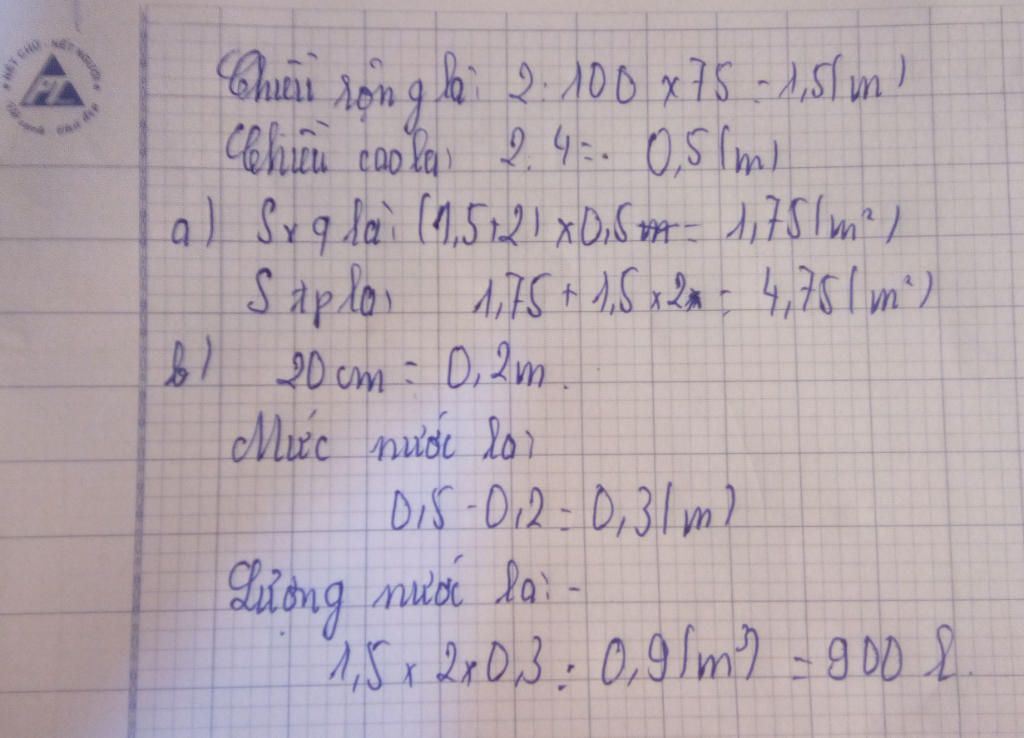 NÉT CHỮ - NẾT NGƯỜI
Chiều rộng là: 2 : 100 x 75 = 1,5 (m)
Chiều cao là: 2 : 4 = 0,5 (m)
a) Sxq là: (1,5+2) x 0,5 = 1,75 (m²)
Stp là: 1,75 + 1,5 x 2 = 4,75 (m²)
b) 20 cm = 0,2 m.
Mức nước là:
0,5 - 0,2 = 0,3 (m)
Lượng nước là:
1,5 x 2 x 0,3 = 0,9 (m³) = 900 l.